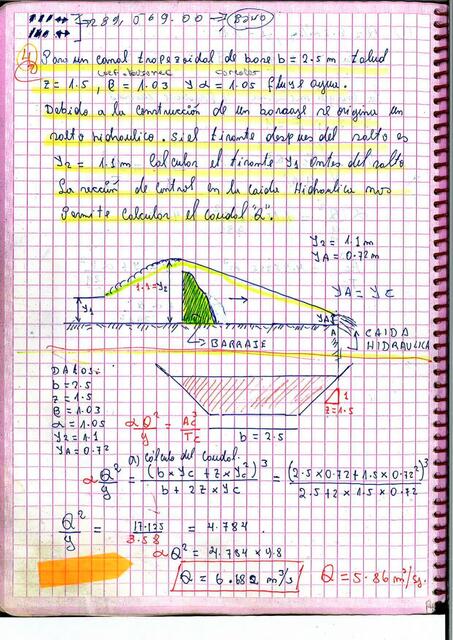 289,069.00 → BANO
4) Para un canal trapezoidal de base b = 2.5 m talud
coriolis
z = 1.5, β = 1.03 y α = 1.05 fluye agua.
Debido a la construcción de un barraje se origina un
salto hidraulico. Si el tirante despues del salto es
y2 = 1.1 m Calcular el tirante y1 antes del salto
La sección de control en la caida Hidraulica nos
Permite calcular el caudal "Q".
y2 = 1.1 m
yA = 0.72 m
yA = yc
1.1 = y2
y1
yA
A
BARRAJE
CAIDA
HIDRAULICA
DATOS:
b = 2.5
z = 1.5
β = 1.03
α = 1.05
y2 = 1.1
yA = 0.72
1
z = 1.5
b = 2.5
αQ²/g = Ac³/Tc
a) Cálculo del caudal.
α Q²/g = (b × yc + z × yc²)³ / (b + 2z × yc) = (2.5 × 0.72 + 1.5 × 0.72²)³ / (2.5 + 2 × 1.5 × 0.72)
Q²/g = 17.125 / 3.58 = 4.784
αQ² = 4.784 × 9.8
Q = 6.682 m³/s
Q = 5.86 m³/sg.